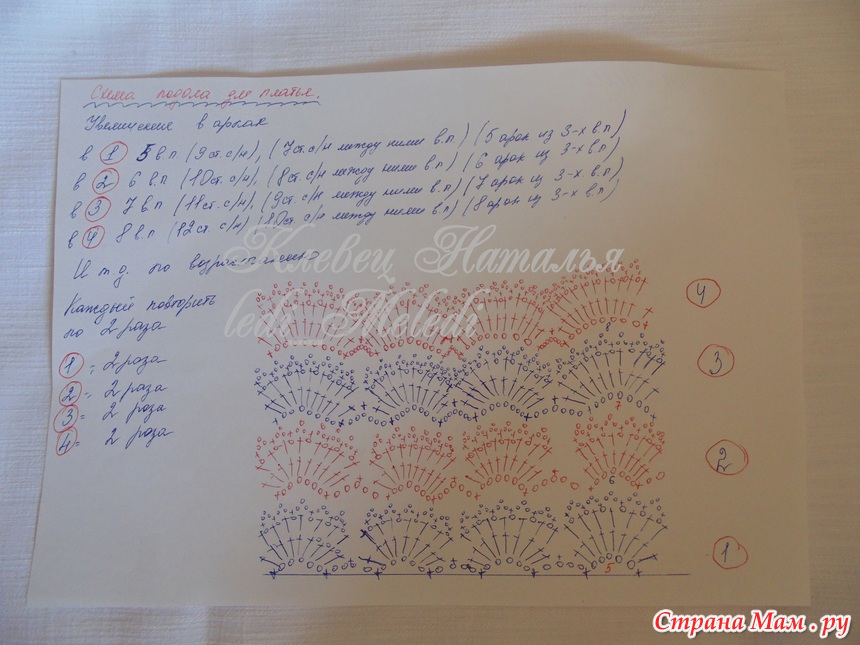 Схема подола для платья.
Увеличения в арках
в 1 5 в.п (9 ст. с/н), (7 ст. с/н между ними в.п) (5 арок из 3-х в.п)
в 2 6 в.п (10 ст. с/н), (8 ст. с/н между ними в.п) (6 арок из 3-х в.п)
в 3 7 в.п (11 ст. с/н), (9 ст. с/н между ними в.п) (7 арок из 3-х в.п)
в 4 8 в.п (12 ст. с/н) (10 ст. с/н между ними в.п) (8 арок из 3-х в.п)
И т.д. по возрастанию
Клевец Наталья
ledi_Meledi
Каждый повторить
по 2 раза
1 = 2 раза
2 = 2 раза
3 = 2 раза
4 = 2 раза
4
8
3
7
2
6
1
5
Страна Мам.ру